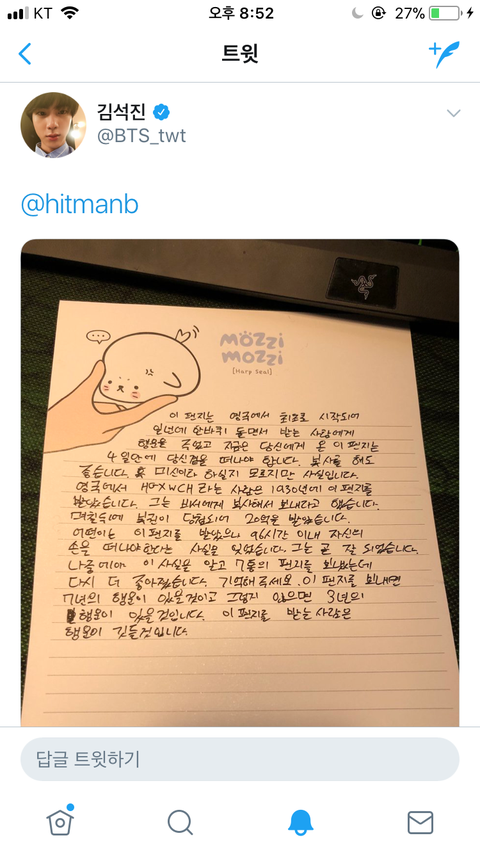 KT 오후 8:52 27%
트윗
김석진
@BTS_twt
@hitmanb
mozzi
mozzi
[Harp Seal]
이 편지는 영국에서 최초로 시작되어
일년에 한바퀴 돌면서 받는 사람에게
행운을 주었고 지금은 당신에게 온 이 편지는
4일안에 당신곁을 떠나야 합니다. 복사를 해도
좋습니다. 혹 미신이라 하실지 모르지만 사실입니다.
영국에서 HGXWCH라는 사람은 1930년에 이 편지를
받았습니다. 그는 비서에게 복사해서 보내라고 했습니다.
며칠뒤에 복권이 당첨되어 20억을 받았습니다.
어떤이는 이 편지를 받았으나 96시간 이내 자신의
손을 떠나야 한다는 사실을 잊었습니다. 그는 곧 잘 되었습니다.
나중에야 이 사실을 알고 7통의 편지를 보냈는데
다시 더 좋아졌습니다. 기억해주세요. 이 편지를 보내면
7년의 행운이 있을것이고 그렇지 않으면 3년의
행운이 있을것입니다. 이 편지를 받는 사람은
행운이 깃들것입니다.
답글 트윗하기